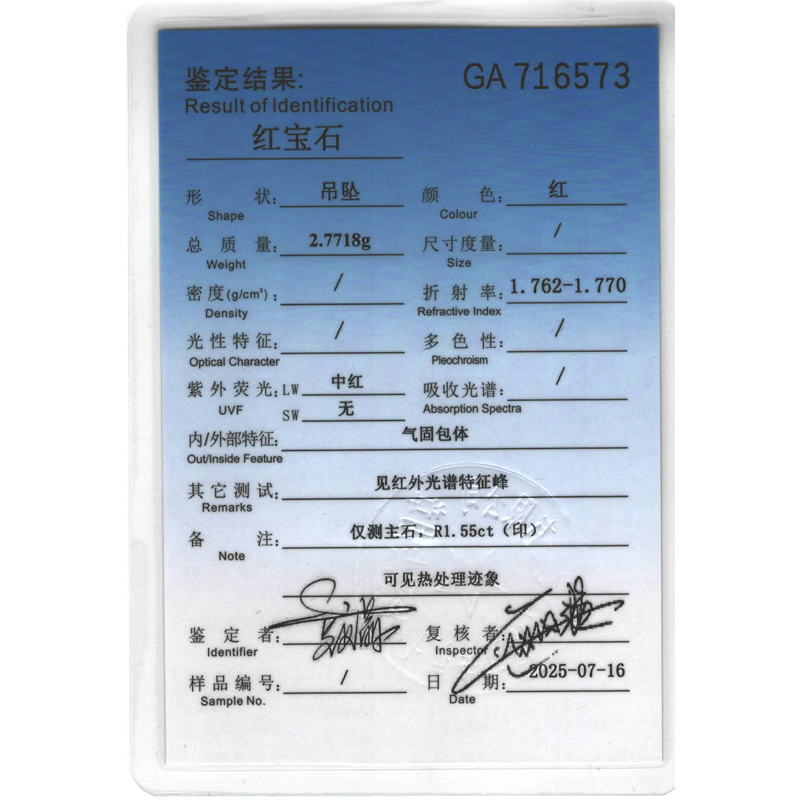 鉴定结果:
GA 716573
Result of Identification
红宝石
形 状: 吊坠 颜 色: 红
Shape Colour
总 质 量: 2.7718g 尺寸度量: /
Weight Size
密度(g/cm³): / 折 射 率: 1.762-1.770
Density Refractive Index
光性特征: / 多 色 性: /
Optical Character Pleochroism
紫外荧光: LW 中红 吸收光谱: /
UVF SW 无 Absorption Spectra
内/外部特征: 气固包体
Out/Inside Feature
其它测试: 见红外光谱特征峰
Remarks
备 注: 仅测主石, R1.55ct (印)
Note
可见热处理迹象
鉴 定 者: 复 核 者:
Identifier Inspector
样品编号: / 日 期: 2025-07-16
Sample No. Date